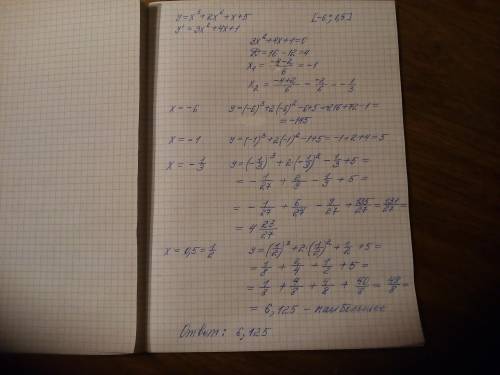 y = x³ + 2x² + x + 5 [-6; 0,5]
y' = 3x² + 4x + 1
3x² + 4x + 1 = 0
D = 16 - 12 = 4
x₁ = (-4-2)/6 = -1
x₂ = (-4+2)/6 = -2/6 = -1/3
x = -6 y = (-6)³ + 2(-6)² - 6 + 5 = -216 + 72 - 1 =
= -145
x = -1 y = (-1)³ + 2(-1)² - 1 + 5 = -1 + 2 + 4 = 5
x = -1/3 y = (-1/3)³ + 2(-1/3)² - 1/3 + 5 =
= -1/27 + 2/9 - 1/3 + 5 =
= -1/27 + 6/27 - 9/27 + 135/27 = 131/27 =
= 4 23/27
x = 0,5 = 1/2 y = (1/2)³ + 2·(1/2)² + 1/2 + 5 =
= 1/8 + 2/4 + 1/2 + 5 =
= 1/8 + 4/8 + 4/8 + 40/8 = 49/8 =
= 6,125 - наибольшее
Ответ: 6,125